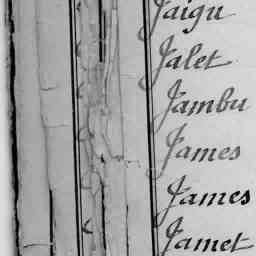 Jaigu
Jalet
Jambu
James
James
Jamet